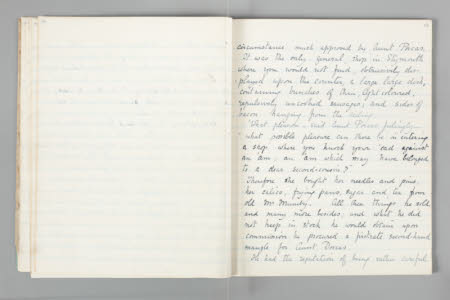 circumstance much approved by Aunt Dorcas.
It was the only general shop in Slymouth
where you would not find, obtrusively dis-
played upon the counter, a large large dish,
containing bunches of thin, light coloured,
repulsively uncooked sausages, and sides of
bacon hanging from the ceiling.
"What pleasure" said Aunt Dorcas feelingly,
"what possible pleasure can there be in entering
a shop where you knock your 'ead against
an 'am; an 'am which may have belonged
to a dear second-cousin?"
Therefore she bought her needles and pins
her calico, frying pans, sugar and tea from
old Mr Mumby. All these things he sold
and many more besides, and what he did
not keep in stock he would obtain upon
commission he procured a second-hand
mangle for Aunt Dorcas.
He had the reputation of being rather careful